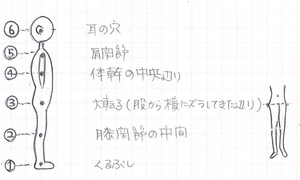 ⑥ 耳の穴
⑤ 肩関節
④ 体幹の中央辺り
③ 大転子(股から横にズラしてきた辺り)
② 膝関節の中間
① くるぶし